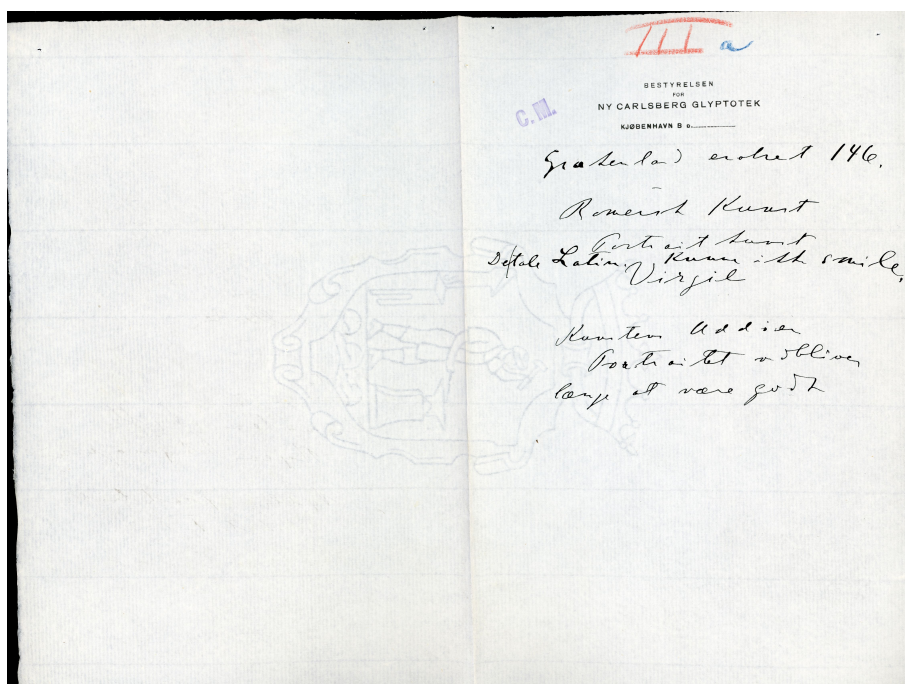 III a
BESTYRELSEN
FOR
NY CARLSBERG GLYPTOTEK
C.M.
KJØBENHAVN B D.
Grækenland erobret 146.
Romersk Kunst
Portraitkunst
De tale Latin. Kunne ikke smile.
Virgil
Kunstens Uddøen
Portraitet vedbliver
længe at være godt